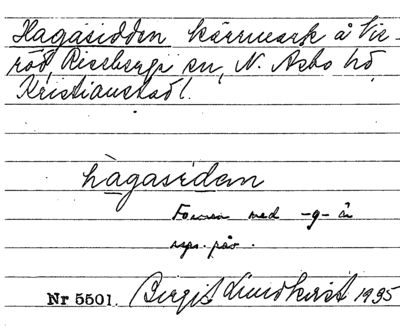 Hagasidden kärrmark å Vie-
röd, Riseberga sn, N. Asbo hd
Kristianstad l.
hagasidan
Formen med -g- är
upp.
Nr 5501. Birgit Lundkvist 1935